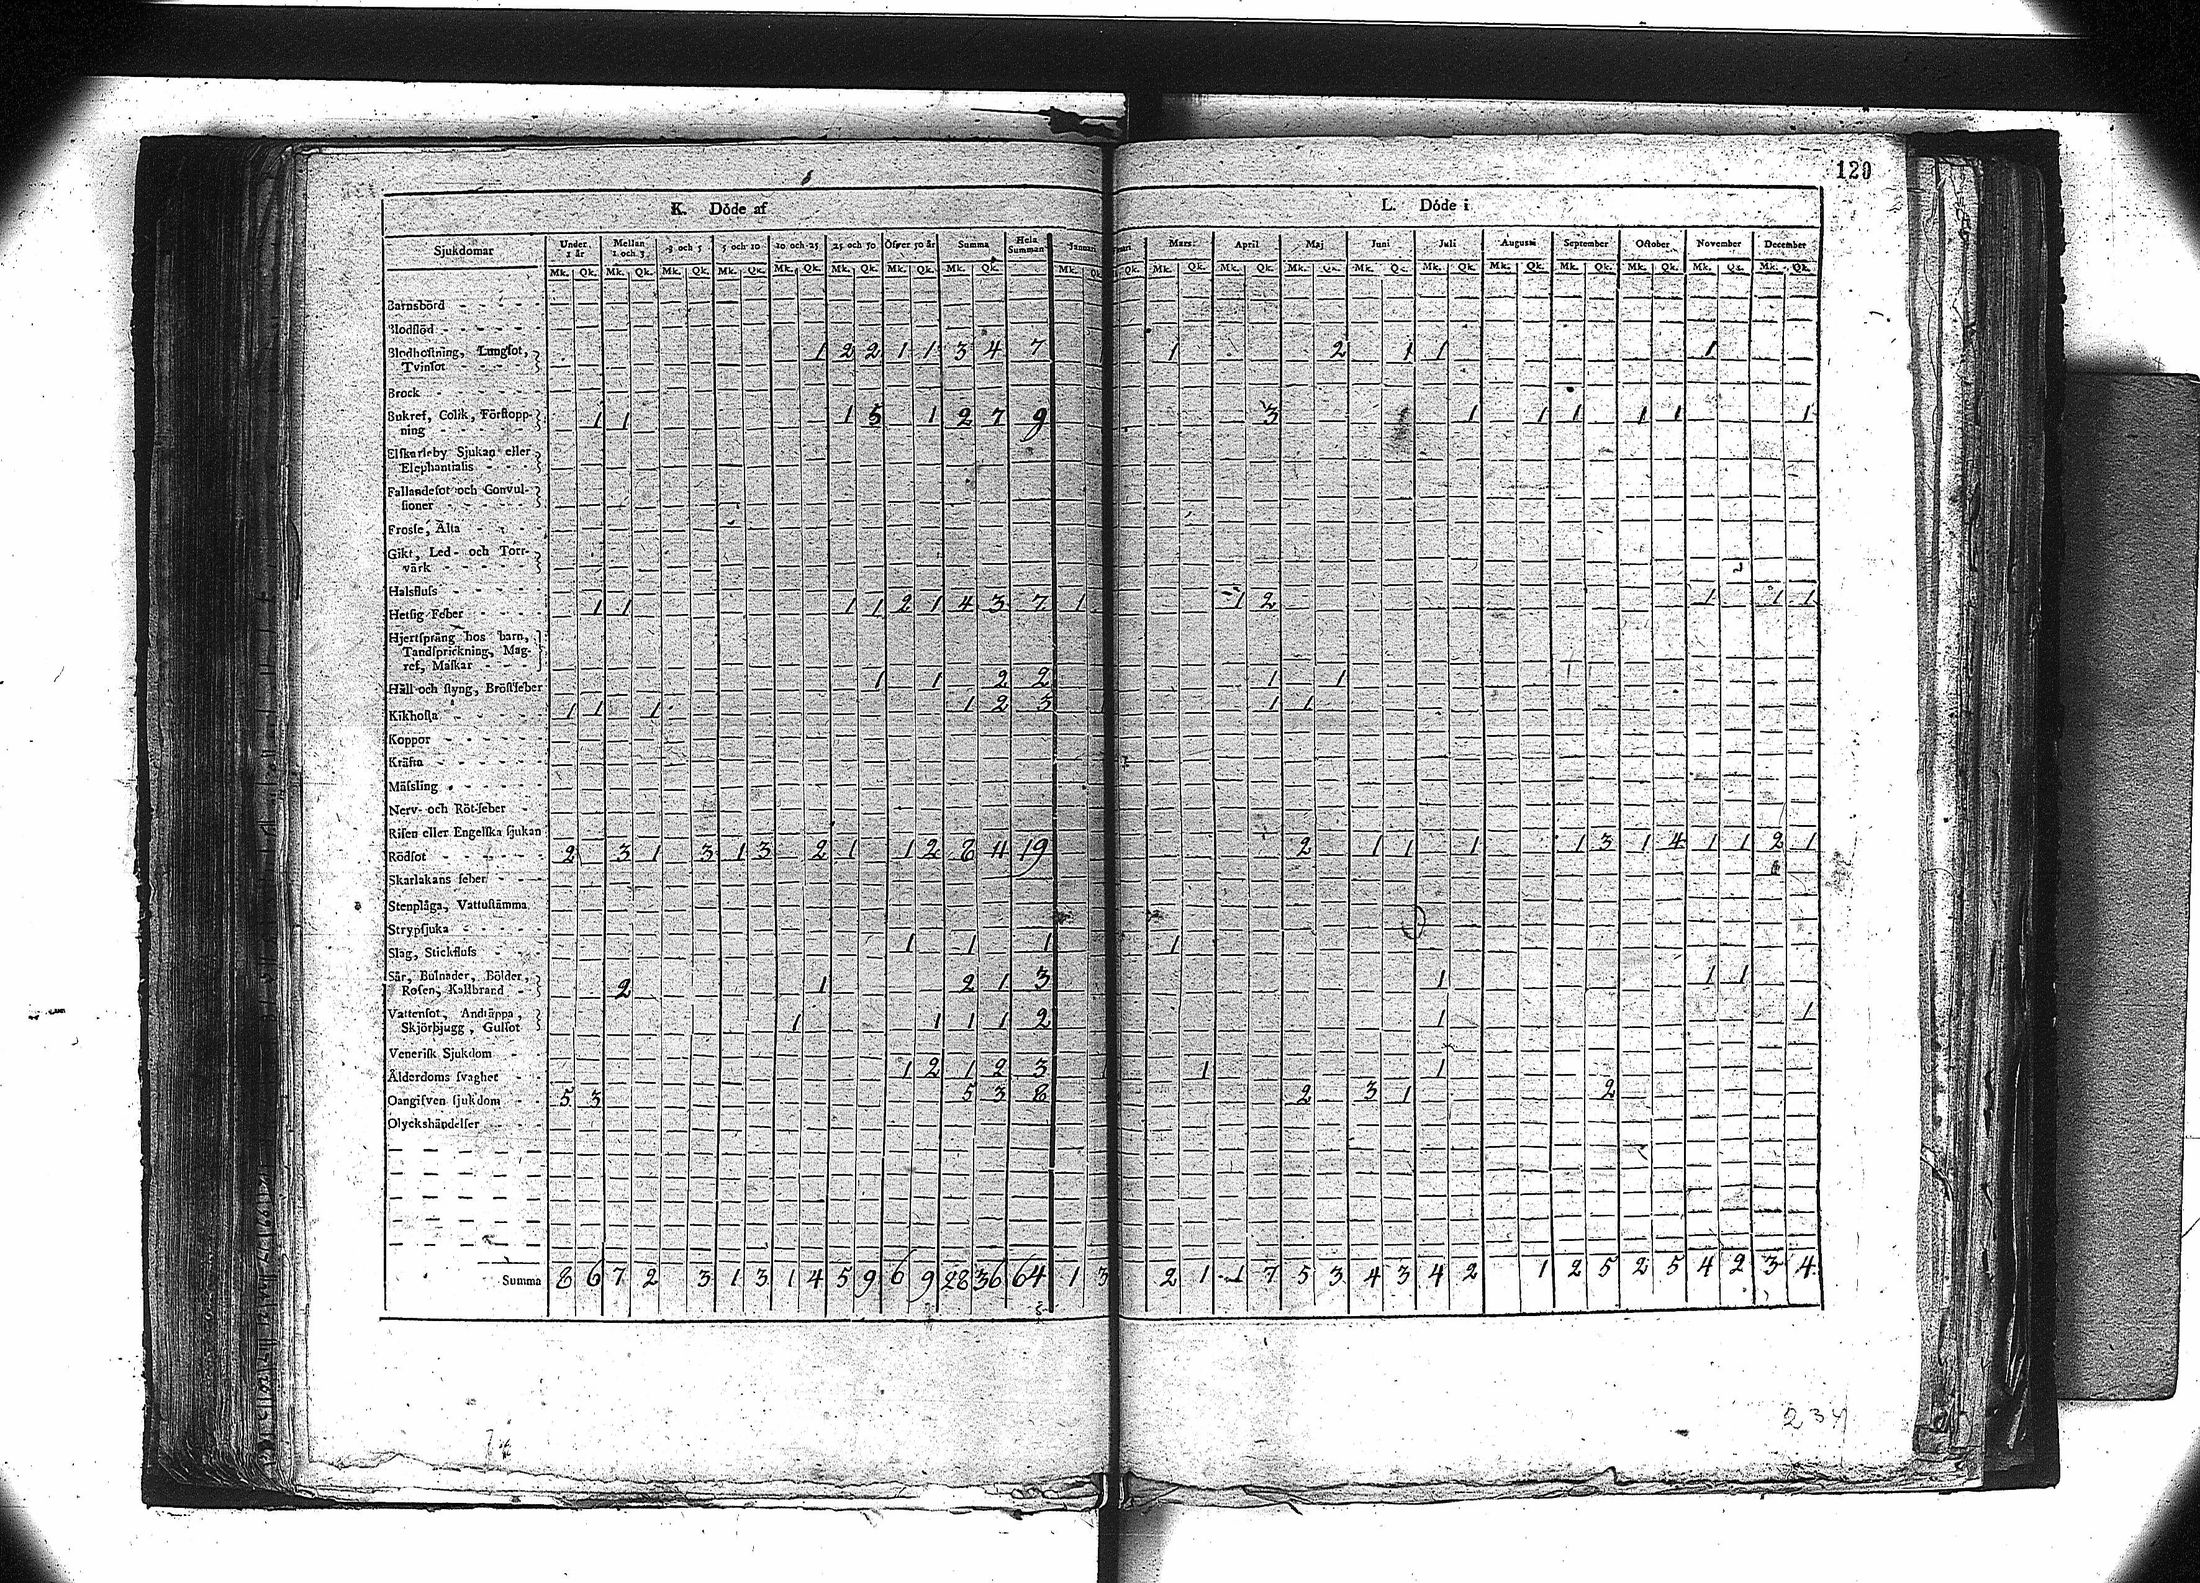 120
K. Döde af
L. Döde i
Sjukdomar Under 1 år Mellan 1 och 3 3 och 5 5 och 10 10 och 25 25 och 50 Öfver 50 år Summa Hela Summan Januari Mars April Maj Juni Juli Augusti September October November December
Mk. Qk. Mk. Qk. Mk. Qk. Mk. Qk. Mk. Qk. Mk. Qk. Mk. Qk. Mk. Qk. Mk. Qk. Qk. Mk. Qk. Mk. Qk. Mk. Qk. Mk. Qk. Mk. Qk. Mk. Qk. Mk. Qk. Mk. Qk. Mk. Qk. Mk. Qk.
Barnsbörd
Blodflöd
Blodhoſtning, Lungſot,
Tvinſot 1 2 2 1 1 3 4 7 1 2 1 1 1
Brock
Bukref, Colik, Förſtopp-
ning 1 1 1 5 1 2 7 9 3 1 1 1 1 1 1
Elſkarleby Sjukan eller
Elephantiaſis
Fallandeſot och Convul-
ſioner
Frosſe, Älta
Gikt, Led- och Torr-
värk
Halsfluſs
Hetſig Feber 1 1 1 1 2 1 4 3 7 1 1 2 1 1 1
Hjertſprång hos barn,
Tandſprickning, Mag-
ref, Maſkar
Håll och ſtyng, Bröſtfeber 1 1 2 2 1 1
Kikhoſta 1 1 1 1 2 3 1 1
Koppor
Kräfta
Mäſsling
Nerv- och Röt-feber
Riſen eller Engelſka ſjukan
Rödſot 2 3 1 3 1 3 2 1 1 2 8 11 19 2 1 1 1 1 3 1 4 1 1 2 1
Skarlakans feber
Stenplåga, Vattuſtämma
Strypſjuka
Slag, Stickfluſs 1 1 1 1
Sår, Bulnader, Bölder,
Roſen, Kallbrand 2 1 2 1 3 1 1 1
Vattenſot, Andtäppa,
Skjörbjugg, Gulſot 1 1 1 1 2 1 1
Veneriſk Sjukdom
Ålderdoms ſvaghet 1 2 1 2 3 1 1 1
Oangifven ſjukdom 5 3 5 3 8 2 3 1 2
Olyckshändelſer
Summa 8 6 7 2 3 1 3 1 4 5 9 6 9 28 36 64 1 3 2 1 1 7 5 3 4 3 4 2 1 2 5 2 5 4 2 3 4
234